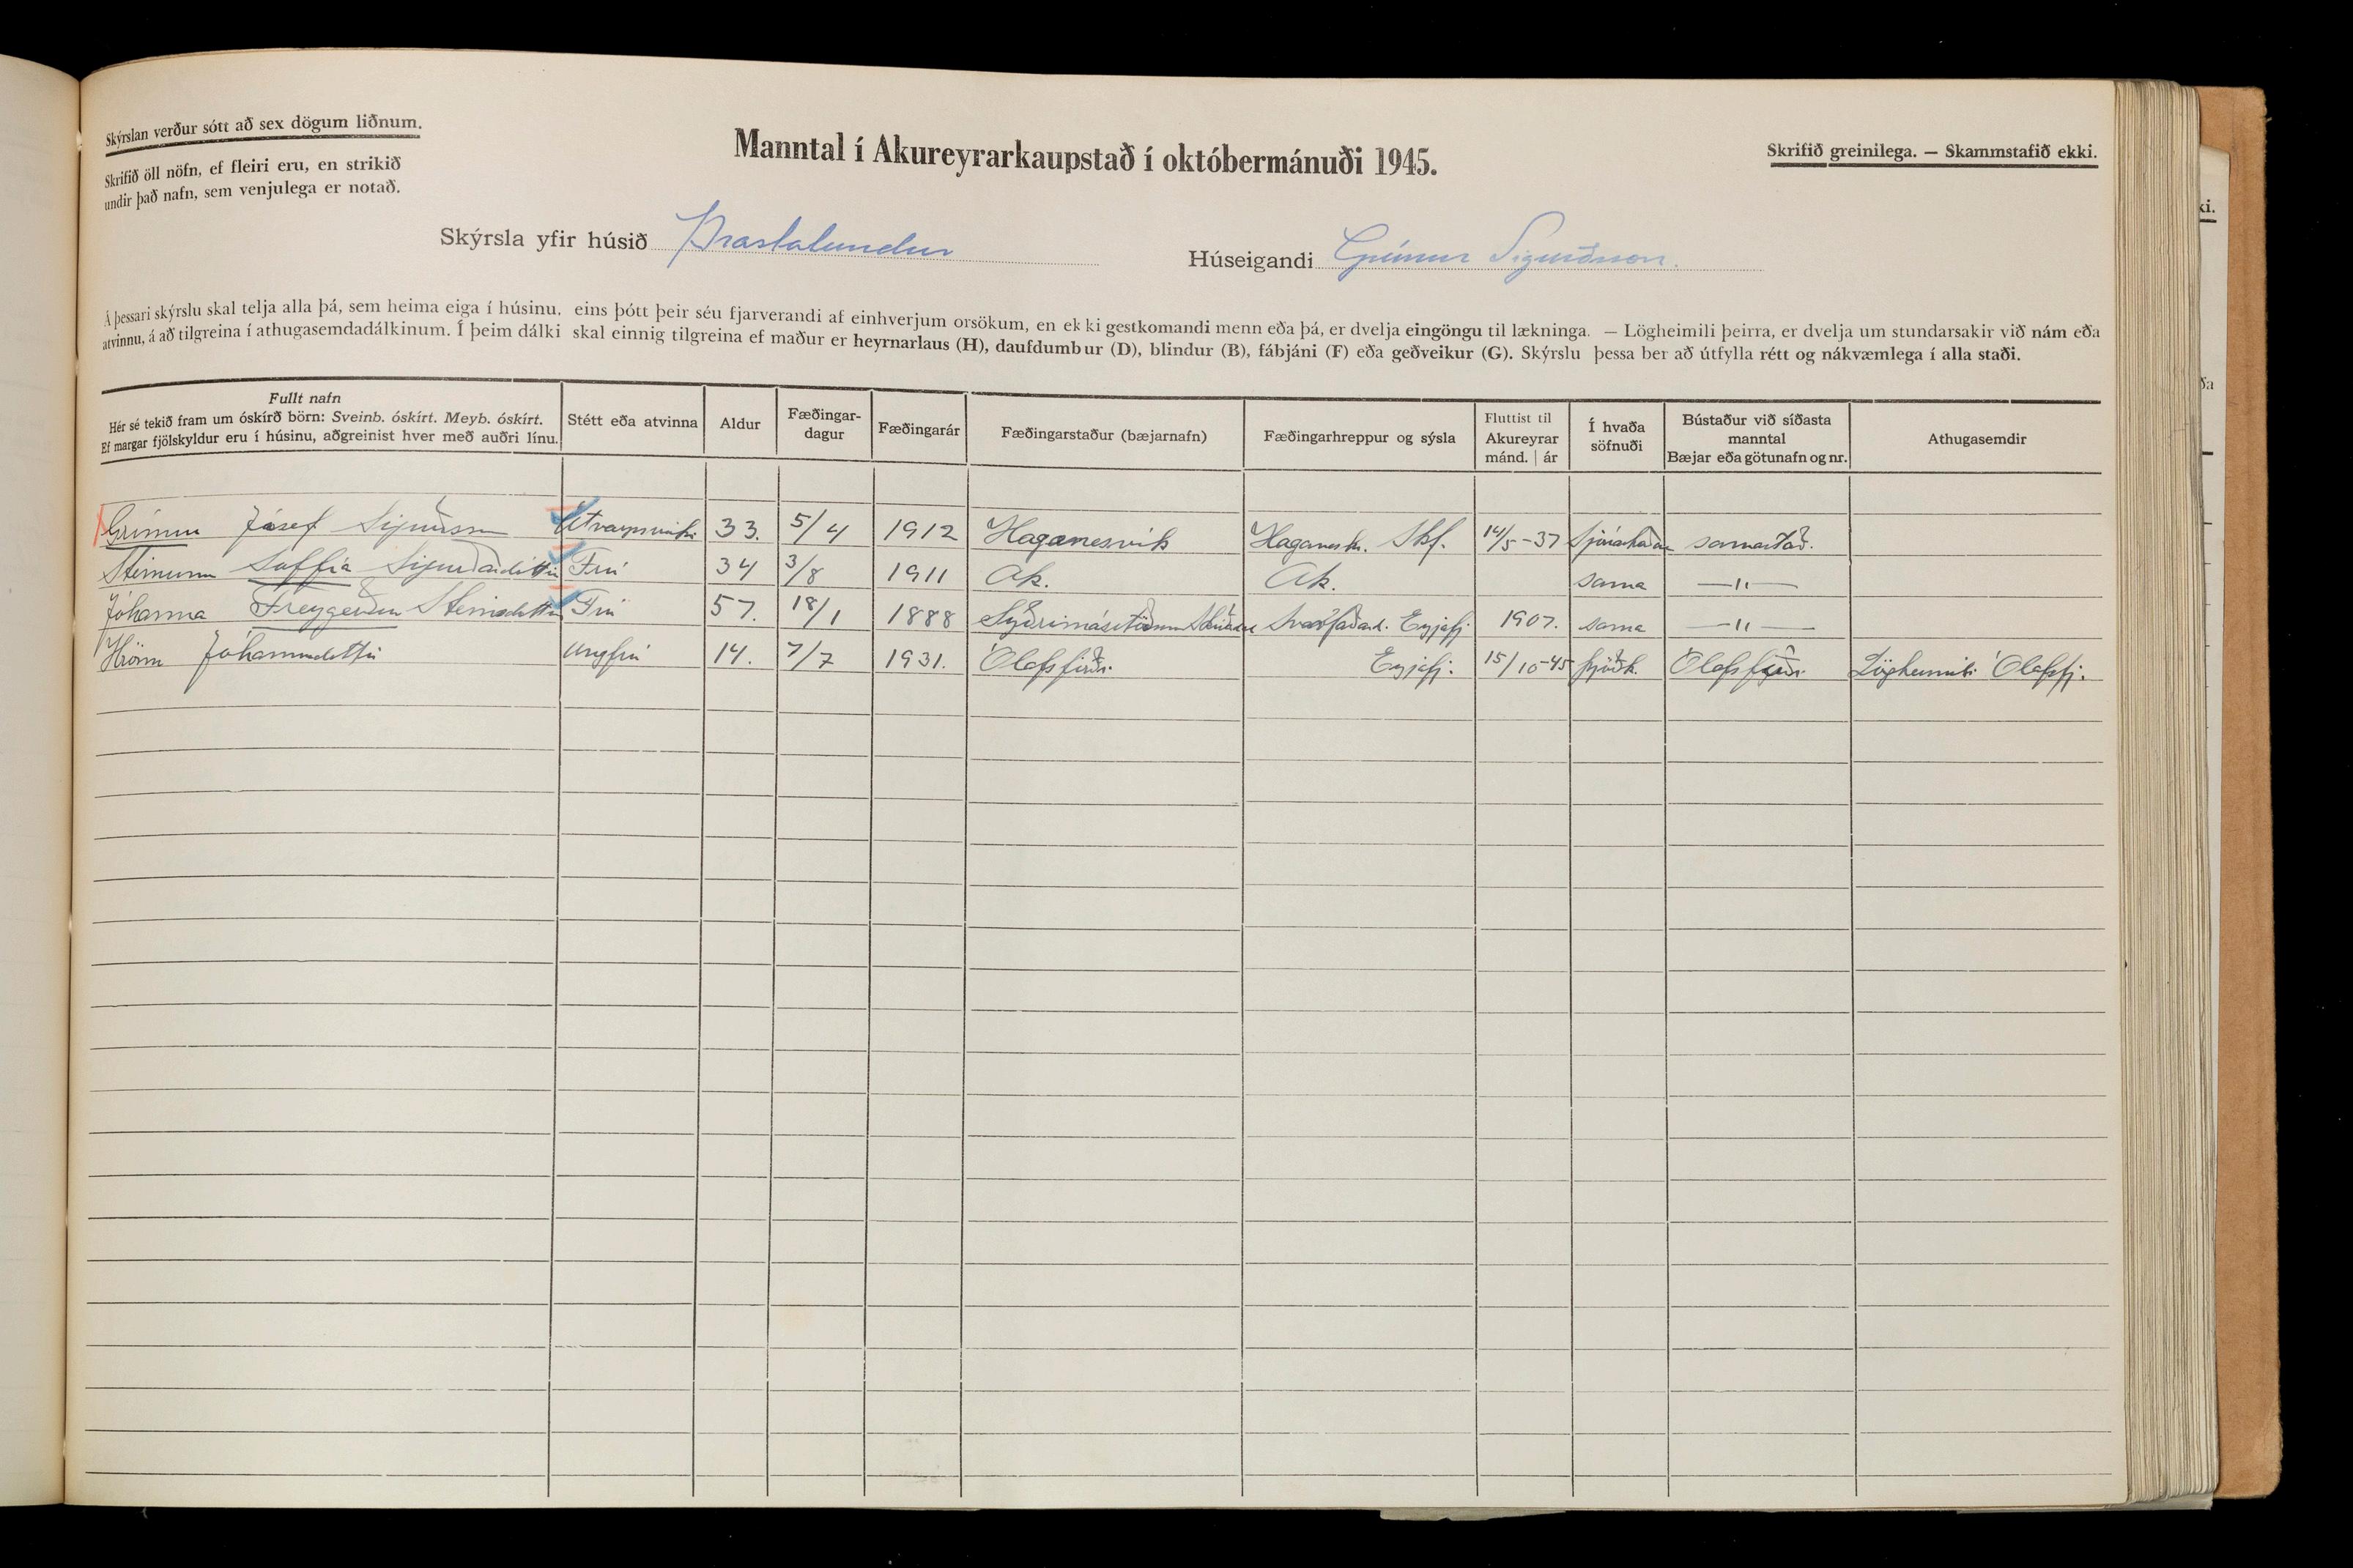 Skýrslan verður sótt að sex dögum liðnum.
Skrifið öll nöfn, ef fleiri eru, en strikið
undir það nafn, sem venjulega er notað.
Manntal í Akureyrarkaupstað í októbermánuði 1945.
Skrifið greinilega. — Skammstafið ekki.
Skýrsla yfir húsið Þrastalundur
Húseigandi Grímur Sigurðsson.
Á þessari skýrslu skal telja alla þá, sem heima eiga í húsinu, eins þótt þeir séu fjarverandi af einhverjum orsökum, en ekki gestkomandi menn eða þá, er dvelja eingöngu til lækninga. — Lögheimili þeirra, er dvelja um stundarsakir við nám eða
atvinnu, á að tilgreina í athugasemdadálkinum. Í þeim dálki skal einnig tilgreina ef maður er heyrnarlaus (H), daufdumbur (D), blindur (B), fábjáni (F) eða geðveikur (G). Skýrslu þessa ber að útfylla rétt og nákvæmlega í alla staði.
Fullt nafn
Hér sé tekið fram um óskírð börn: Sveinb. óskírt. Meyb. óskírt.
Ef margar fjölskyldur eru í húsinu, aðgreinist hver með auðri línu.
Stétt eða atvinna
Aldur
Fæðingar-
dagur
Fæðingarár
Fæðingarstaður (bæjarnafn)
Fæðingarhreppur og sýsla
Fluttist til
Akureyrar
mánd. | ár
Í hvaða
söfnuði
Bústaður við síðasta
manntal
Bæjar eða götunafn og nr.
Athugasemdir
Grímur Jósef Sigurðsson Útvarpsvirki 33. 5/4 1912 Haganesvík Haganeshr. Skf. 14/5-37 samastað.
Steinunn Soffía Sigurðardóttir Frú 34 3/8 1911 Ak. Ak. sama —"—
Jóhanna Freygerður Steinsdóttir Frú 57. 18/1 1888 Svarfaðard. Eyjafj. 1907. sama —"—
Hrönn Jóhannsdóttir ungfrú 14. 7/7 1931. Ólafsfirði Eyjafj. 15/10-45 þjóðk. Ólafsfirði Lögheimili Ólafsfj.